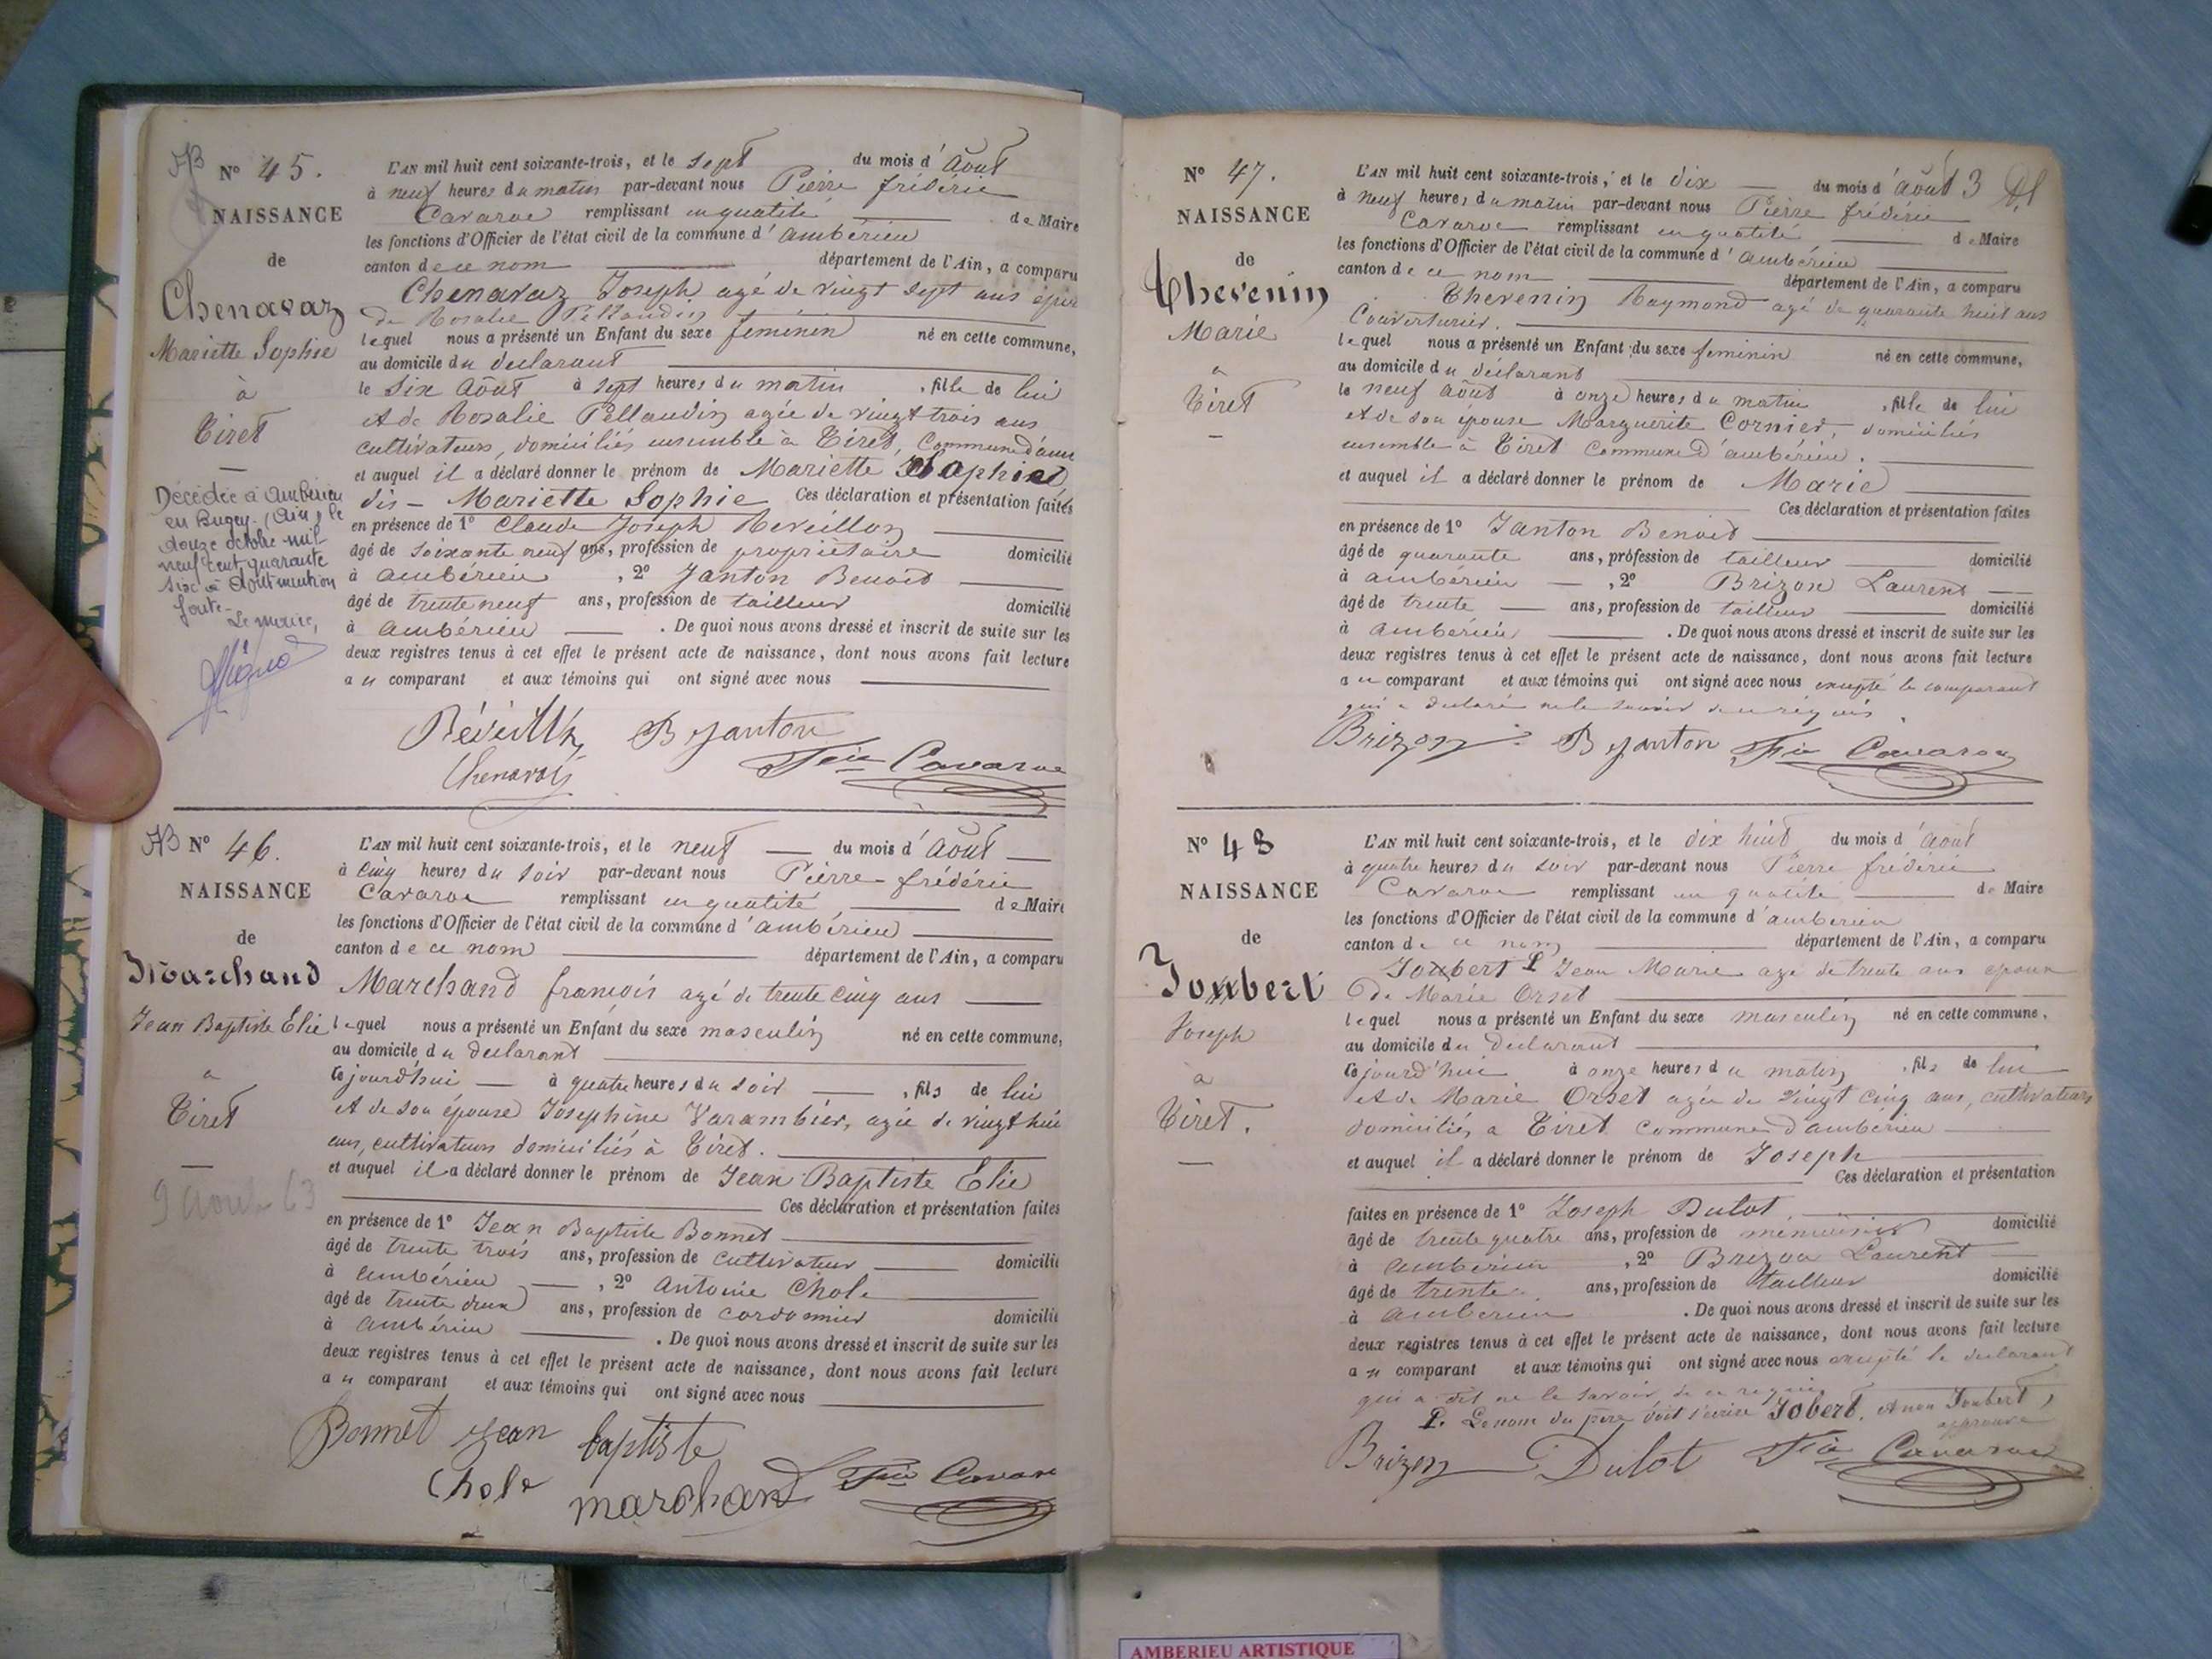 N° 45.
NAISSANCE
de
Chenavaz
Mariette Sophie
à
Tiret
Décédée à Ambérieu
en Bugey (Ain) le
douze octobre mil
neuf cent quarante
six à dont mention
faite
Le maire,
L'AN mil huit cent soixante-trois, et le sept du mois d'Août
à neuf heures du matin par-devant nous Pierre frédéric
Cavaroc remplissant en qualité de Maire
les fonctions d'Officier de l'état civil de la commune d'ambérieu
canton de ce nom département de l'Ain, a comparu
Chenavaz Joseph agé de vingt sept ans époux
de Rosalie Pellaudin
lequel nous a présenté un Enfant du sexe feminin né en cette commune,
au domicile du declarant
le six Août à sept heures du matin , fille de lui
et de Rosalie Pellaudin agée de vingt trois ans
cultivateurs, domiciliés ensemble à Tiret, Commune d'am
et auquel il a déclaré donner le prénom de Mariette
dis - Mariette Sophie Ces déclaration et présentation faites
en présence de 1° Claude Joseph Reveillon
âgé de soixante neuf ans, profession de propriétaire domicilié
à ambérieu , 2° Janton Benoit
âgé de trente neuf ans, profession de tailleur domicilié
à ambérieu . De quoi nous avons dressé et inscrit de suite sur les
deux registres tenus à cet effet le présent acte de naissance, dont nous avons fait lecture
au comparant et aux témoins qui ont signé avec nous
B Janton
Chenavaz Cavaroc
N° 46.
NAISSANCE
de
Marchand
Jean Baptiste Elie
a
Tiret
9 août 63
L'AN mil huit cent soixante-trois, et le neuf du mois d'Août
à cinq heures du soir par-devant nous Pierre frédéric
Cavaroc remplissant en qualité de Maire
les fonctions d'Officier de l'état civil de la commune d'ambérieu
canton de ce nom département de l'Ain, a comparu
Marchand françois agé de trente cinq ans
lequel nous a présenté un Enfant du sexe masculin né en cette commune,
au domicile du declarant
cejourd'hui à quatre heures du soir , fils de lui
et de son épouse Josephine Varambier, agée de vingt huit
ans, cultivateurs domiciliés à Tiret.
et auquel il a déclaré donner le prénom de Jean Baptiste Elie
Ces déclaration et présentation faites
en présence de 1° Jean Baptiste Bonnet
âgé de trente trois ans, profession de cultivateur domicilié
à ambérieu , 2° antoine Chole
âgé de trente deux ans, profession de cordonnier domicilié
à ambérieu . De quoi nous avons dressé et inscrit de suite sur les
deux registres tenus à cet effet le présent acte de naissance, dont nous avons fait lecture
au comparant et aux témoins qui ont signé avec nous
Bonnet jean baptiste
Chole marchand Cavaroc
N° 47.
NAISSANCE
de
Thevenin
Marie
a
Tiret
L'AN mil huit cent soixante-trois, et le dix du mois d'août 3
à neuf heures du matin par-devant nous Pierre frédéric
Cavaroc remplissant en qualité de Maire
les fonctions d'Officier de l'état civil de la commune d'ambérieu
canton de ce nom département de l'Ain, a comparu
Thevenin Raymond agé de quarante huit ans
Couverturier.
lequel nous a présenté un Enfant du sexe feminin né en cette commune,
au domicile du déclarant
le neuf août à onze heures du matin , fille de lui
et de son épouse Marguerite Cornier, domiciliés
ensemble à Tiret Commune d'ambérieu.
et auquel il a déclaré donner le prénom de Marie
Ces déclaration et présentation faites
en présence de 1° Janton Benoit
âgé de quarante ans, profession de tailleur domicilié
à ambérieu , 2° Brizon Laurent
âgé de trente ans, profession de tailleur domicilié
à ambérieu . De quoi nous avons dressé et inscrit de suite sur les
deux registres tenus à cet effet le présent acte de naissance, dont nous avons fait lecture
au comparant et aux témoins qui ont signé avec nous excepté le comparant
qui a declaré ne le savoir de ce requis.
Brizon B Janton Cavaroc
N° 48
NAISSANCE
de
Joubert
Joseph
à
Tiret.
L'AN mil huit cent soixante-trois, et le dix huit du mois d'août
à quatre heures du soir par-devant nous Pierre frédéric
Cavaroc remplissant en qualité de Maire
les fonctions d'Officier de l'état civil de la commune d'ambérieu
canton de ce nom département de l'Ain, a comparu
Joubert Jean Marie agé de trente ans epoux
de Marie Orset
lequel nous a présenté un Enfant du sexe masculin né en cette commune,
au domicile du declarant
cejourd'hui à onze heures du matin , fils de lui
et de Marie Orset agée de vingt cinq ans, cultivateurs
domiciliés a Tiret Commune d'ambérieu
et auquel il a déclaré donner le prénom de Joseph
Ces déclaration et présentation
faites en présence de 1° Joseph Dulot
âgé de trente quatre ans, profession de menuisier domicilié
à ambérieu , 2° Brizon Laurent
âgé de trente ans, profession de tailleur domicilié
à ambérieu . De quoi nous avons dressé et inscrit de suite sur les
deux registres tenus à cet effet le présent acte de naissance, dont nous avons fait lecture
au comparant et aux témoins qui ont signé avec nous excepté le declarant
qui a dit ne le savoir de ce requis
Le nom du père doit s'écrire Jobert, et non Joubert,
approuvé
Brizon Dulot Cavaroc
AMBERIEU ARTISTIQUE